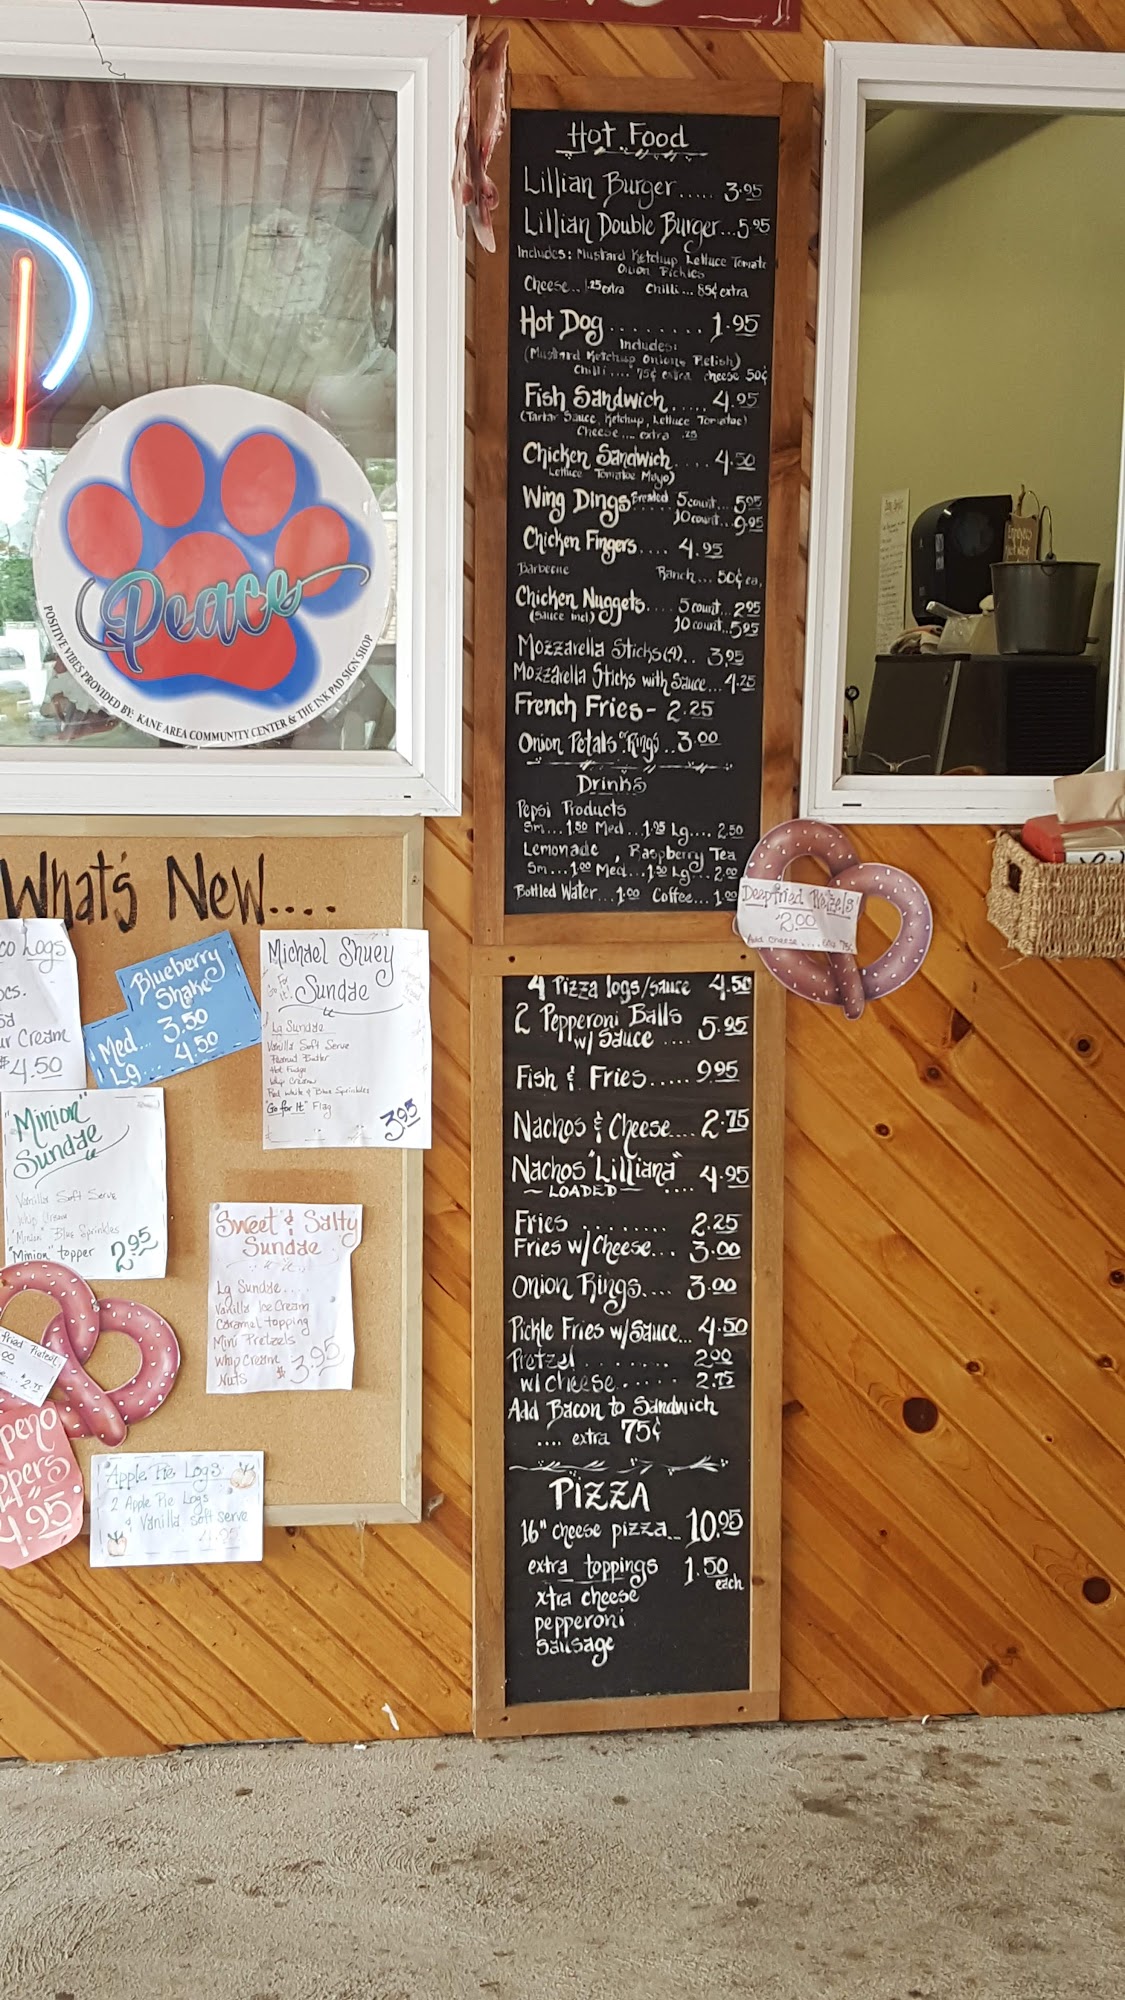 Hot Food
Lillian Burger..... 3.95
Lillian Double Burger...5.95
Includes: Mustard Ketchup Lettuce Tomato
Onion Pickles
Cheese.. .25 extra Chilli... 85¢ extra
Hot Dog ........ 1.95
Includes:
(Mustard Ketchup Onions Relish)
Chilli .... 75¢ extra cheese 50¢
Fish Sandwich..... 4.95
(Tartar Sauce, Ketchup, Lettuce Tomatoe)
Cheese.... extra .25
Chicken Sandwich.... 4.50
Lettuce Tomatoe Mayo)
Wing Dings Breaded 5 count... 5.95
10 count... 9.95
Chicken Fingers.... 4.95
Barbecue Ranch... 50¢ ea.
Chicken Nuggets.... 5 count...2.95
(Sauce incl) 10 count...5.95
Mozzarella Sticks(4).. 3.95
Mozzarella Sticks with Sauce...4.25
French Fries- 2.25
Onion Petals or Rings..3.00
Drinks
Pepsi Products
Sm...1.50 Med...1.95 Lg.... 2.50
Lemonade, Raspberry Tea
Sm...1.00 Med...1.50 Lg...2.00
Bottled Water...1.00 Coffee...1.00
4 Pizza logs/sauce 4.50
2 Pepperoni Balls
w/ Sauce .... 5.95
Fish & Fries..... 9.95
Nachos & Cheese.... 2.75
Nachos "Lilliana"
~LOADED~ .... 4.95
Fries ........ 2.25
Fries w/Cheese... 3.00
Onion Rings.... 3.00
Pickle Fries w/Sauce... 4.50
Pretzel ........ 2.00
w/ cheese...... 2.75
Add Bacon to Sandwich
.... extra 75¢
PIZZA
16" cheese pizza... 10.95
extra toppings 1.50
each
xtra cheese
pepperoni
sausage
Deepfried Pretzels
2.00
Add cheese .... 75¢
Peace
POSITIVE VIBES PROVIDED BY: KANE AREA COMMUNITY CENTER & THE INK PAD SIGN SHOP
What's New....
co Logs
pcs.
ur Cream
$4.50
Blueberry
Shake
Med... 3.50
Lg... 4.50
Michael Shuey
Go For It! Sundae
Lg Sundae
Vanilla Soft Serve
Peanut Butter
Hot Fudge
Whip Cream
Red White & Blue Sprinkles
"Go for It" Flag
3.95
"Minion"
Sundae
Vanilla Soft Serve
Whip Cream
"Minion" Blue Sprinkles
"Minion" topper 2.95
Sweet & Salty
Sundae
Lg Sundae....
Vanilla Ice Cream
Caramel topping
Mini Pretzels
Whip Cream
Nuts $3.95
fried Pretzel
peno
ppers
4.95
Apple Pie Logs
2 Apple Pie Logs
& Vanilla soft serve
4.95